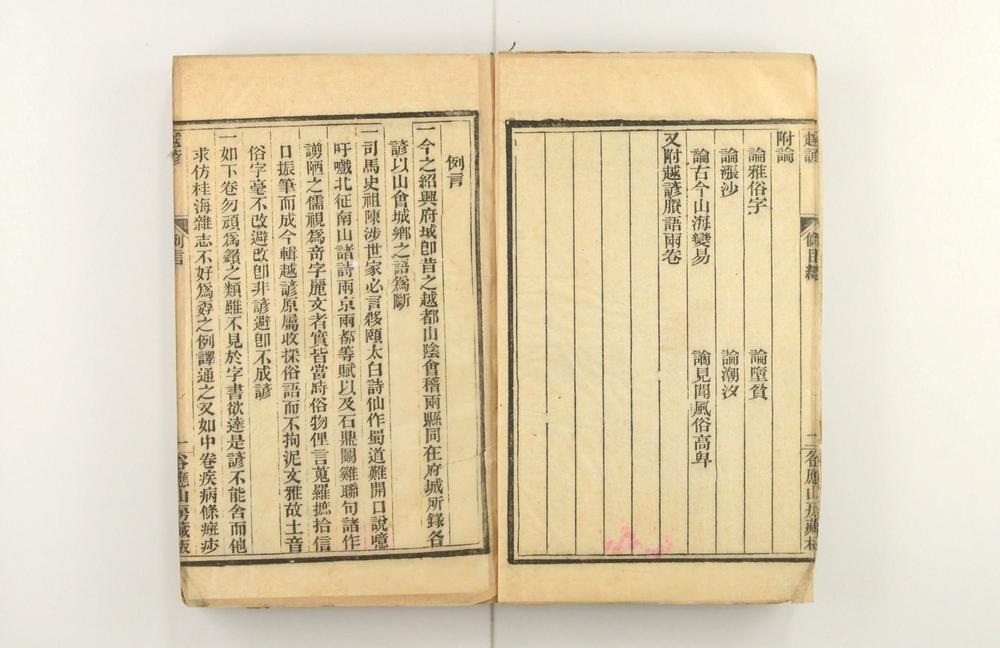 越諺
條目總
二 谷應山房藏板
附論
論雅俗字 論墮貧
論漲沙 論潮汐
論古今山海變易 論見聞風俗高卑
又附越諺賸語兩卷
例言
一今之紹興府城卽昔之越都山陰會稽兩縣同在府城所錄各
諺以山會城鄉之語爲斷
一司馬史祖陳涉世家必言夥頤太白詩仙作蜀道難開口說噫
吁嚱北征南山諸詩兩京兩都等賦以及石鼎鬭雞聯句諸作
謭陋之儒視爲奇字麗文者實皆當時俗物俚言蒐羅摭拾信
口振筆而成今輯越諺原屬收採俗語而不拘泥文雅故土音
俗字毫不改避改卽非諺避卽不成諺
一如下卷勿頑爲之類雖不見於字書欲達是諺不能舍而他
求仿桂海雜志不好爲孬之例譯通之又如中卷疾病條痧
越諺
例言
一 谷應山房藏板